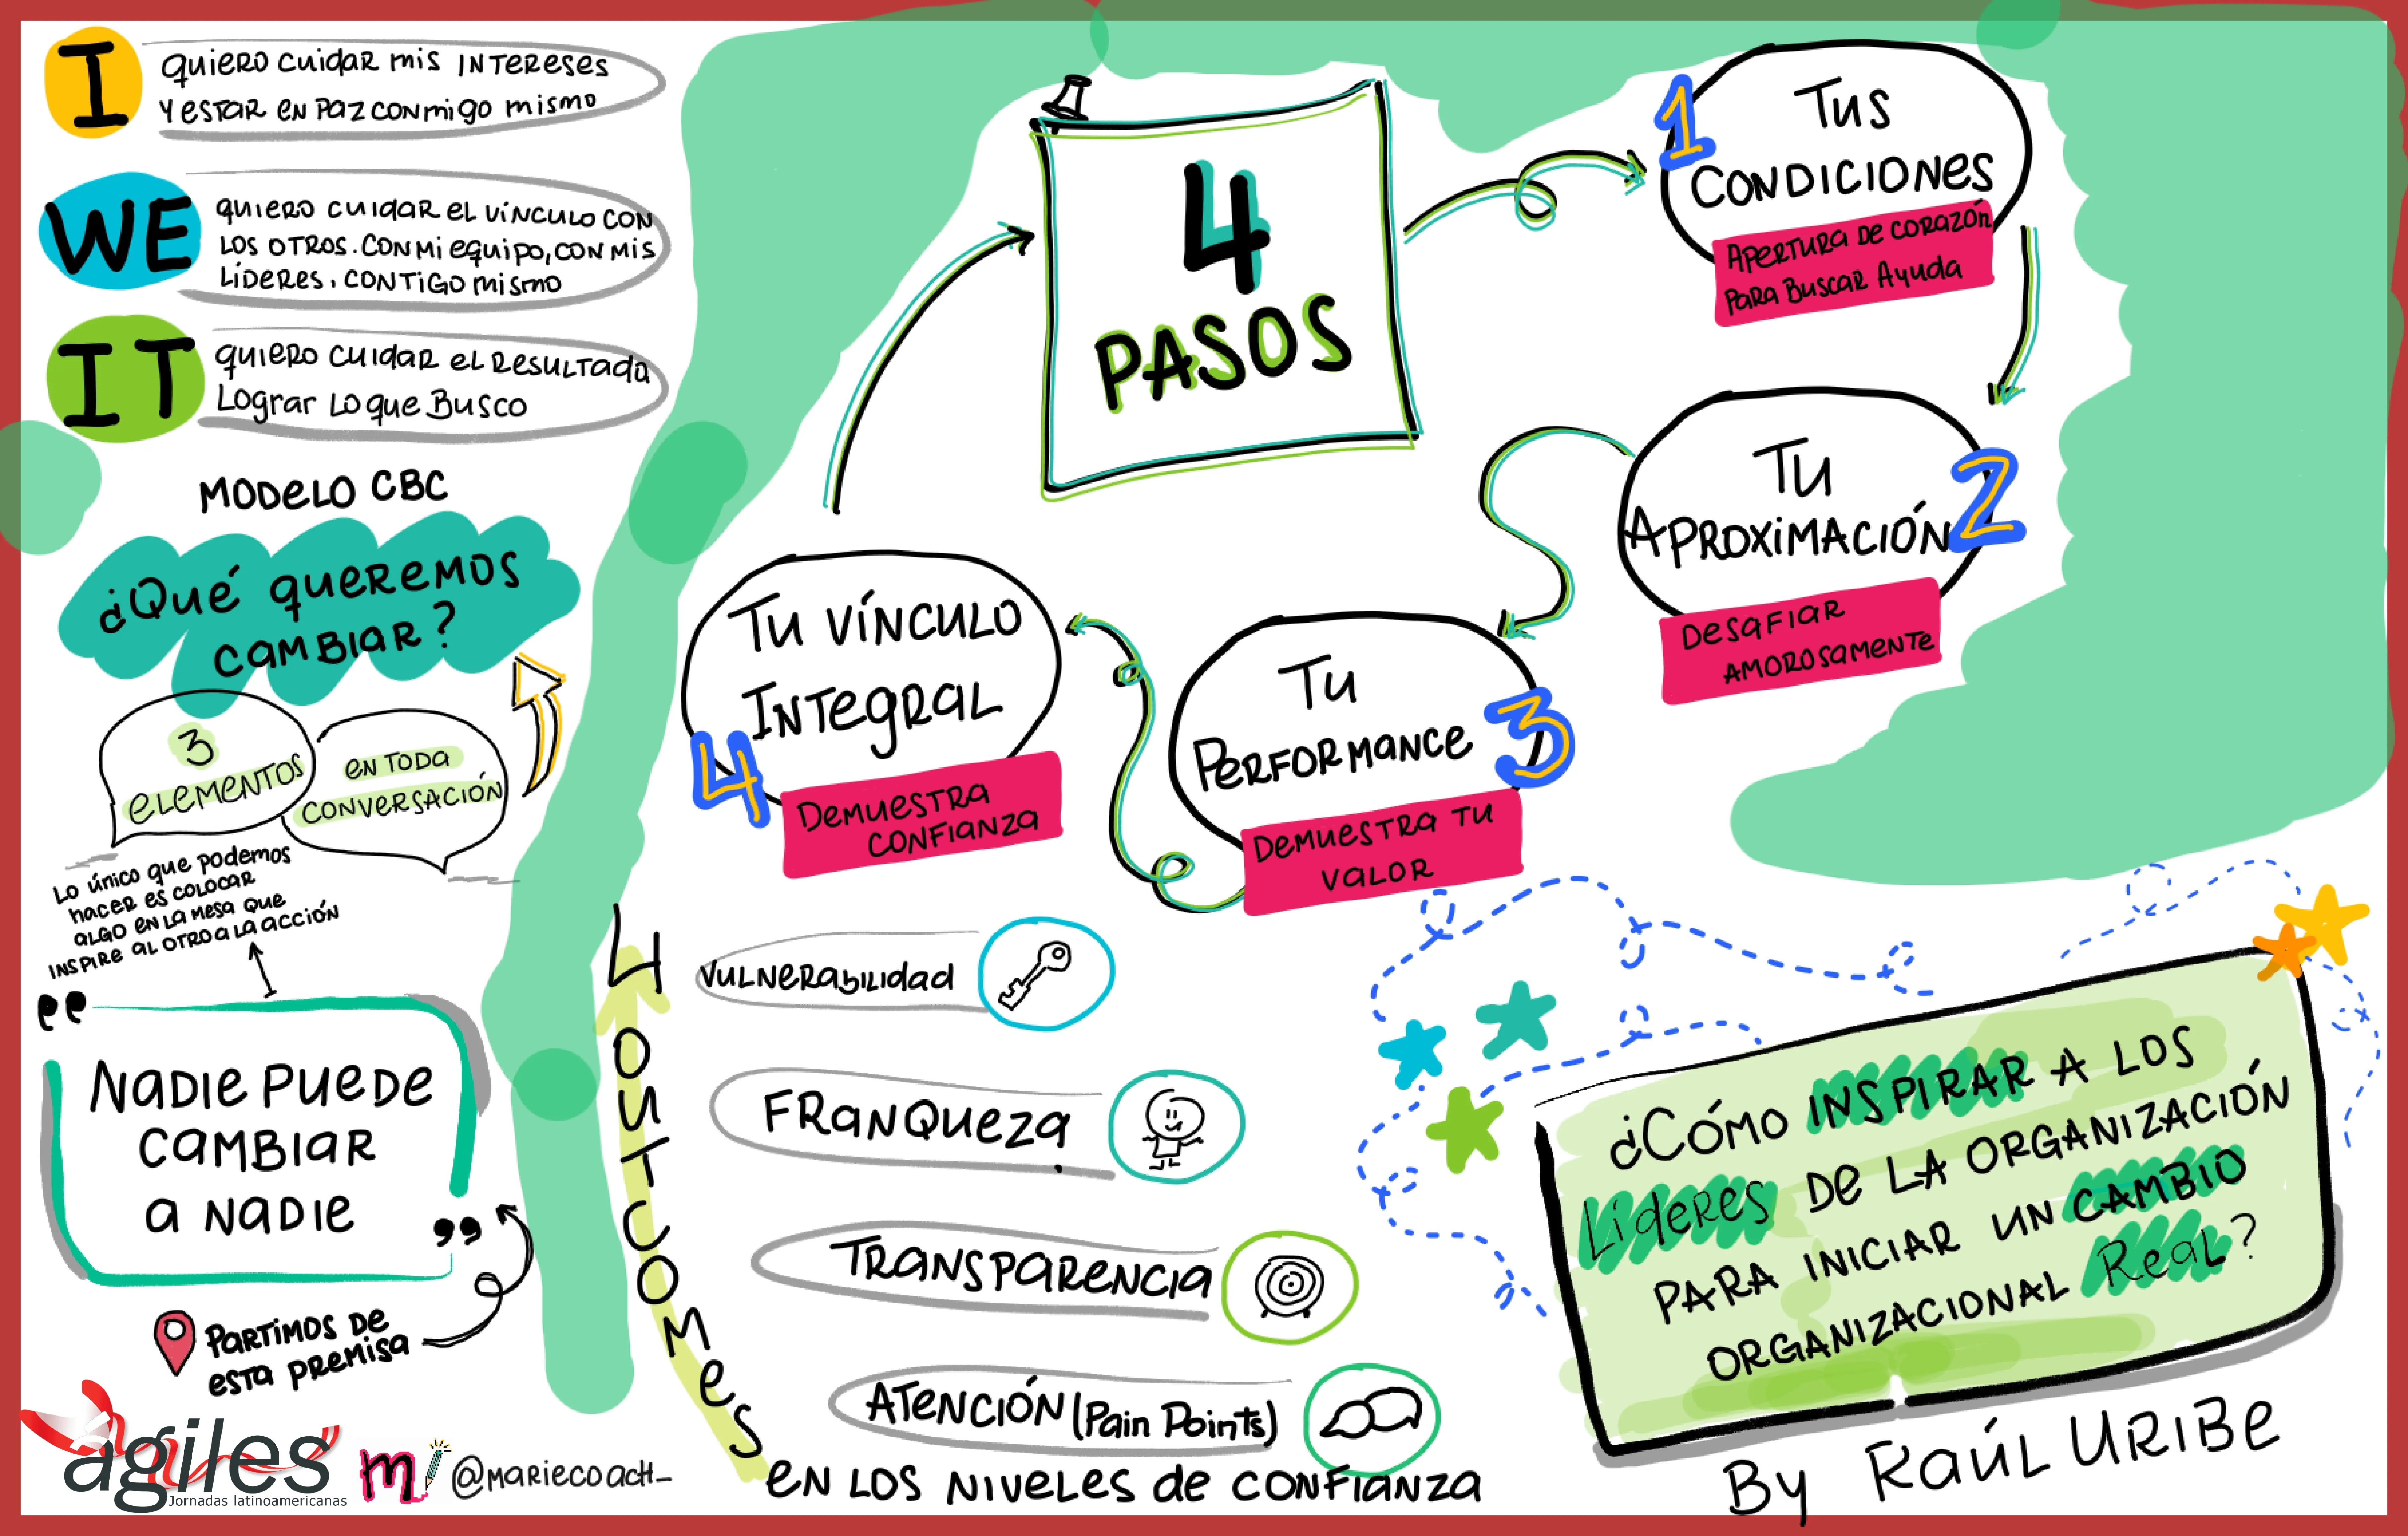 I
quiero cuidar mis INTERESES
Y ESTAR EN PAZ CONMIGO MISMO
WE
quiero cuidar el vínculo con
los otros. con mi equipo, con mis
líderes, contigo mismo
IT
quiero cuidar el resultado
Lograr lo que busco
MODELO CBC
¿Qué queremos
cambiar?
3
elementos
en toda
conversación
Lo único que podemos
hacer es colocar
algo en la mesa que
inspire al otro a la acción
"Nadie puede
cambiar
a nadie"
Partimos de
esta premisa
agiles
Jornadas latinoamericanas
m
@mariecoach_
4
PASOS
1
Tus
condiciones
Apertura de corazón
para buscar ayuda
2
Tu
aproximación
Desafiar
amorosamente
3
Tu
performance
Demuestra tu
valor
4
Tu vínculo
integral
Demuestra
confianza
4 outcomes
en los niveles de confianza
Vulnerabilidad
Franqueza
Transparencia
Atención (Pain Points)
¿Cómo INSPIRAR a los
Líderes de la organización
para iniciar un cambio
organizacional Real?
By Raúl Uribe